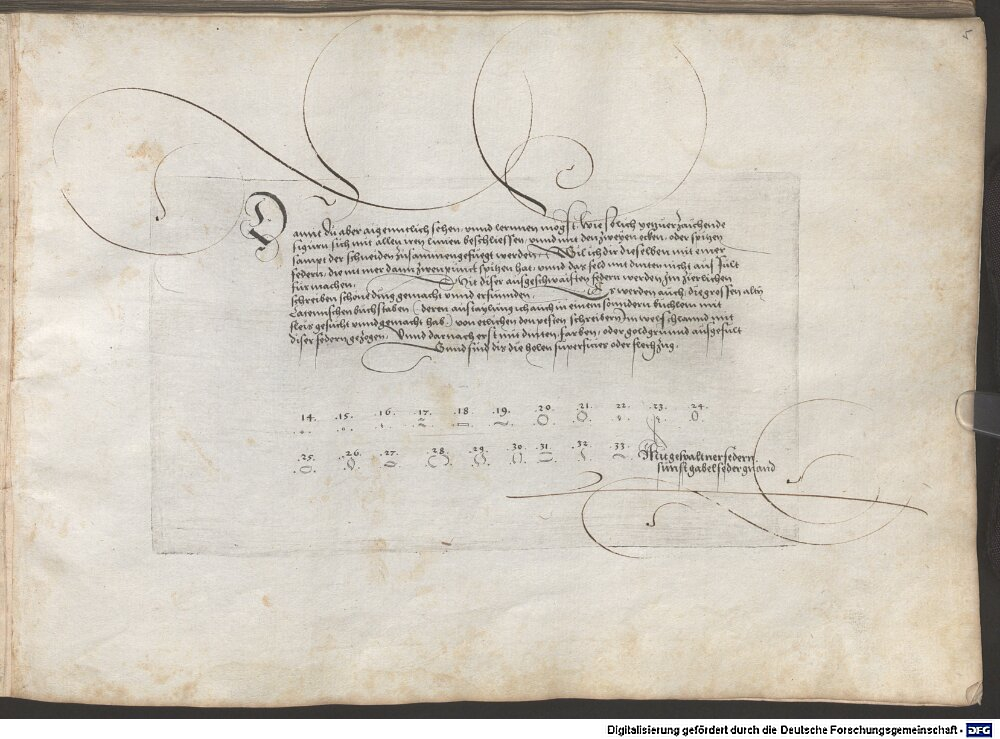 5
Damit Du aber aigenntlich sehen, vnnd lernnen mögst. Wie solich yetzuerzaichennde
figurn sich mit allen iren linien beschliessen, vnnd mit den zwayen ecken, oder spitzen
sampt der schneiden zusammengefüegt werden, Wil ich dir dieselben mit einer
federn, die nit mer dann zwen punct spitzen hat, vnnd das feld mit dinten nicht ausfült
für machen. Mit diser ausgeschwaifften federn werden jm zierlichen
schreiben schöne ding gemacht vnnd erfunnden. Es werden auch die grossen altñ
Lateinischen buchstaben (deren austaylung ich auch in einem sonndern büchlein mit
fleis gesucht vnnd gemacht hab) von etlichen den pesten schreibern, Jn welschlannd mit
diser federn gezogen, Vnnd darnach erst mit dinten farben, oder goldgrund ausgefült
Vnnd sind dis die holen superficies oder flechzüg.
.14. .15. .16. .17. .18. .19. .20. .21. .22. .23. .24.
.25. .26. .27. .28. .29. .30. .31. .32. .33. Mit gespaltner federn
sunst gabelfeder gnand
Digitalisierung gefördert durch die Deutsche Forschungsgemeinschaft - DFG